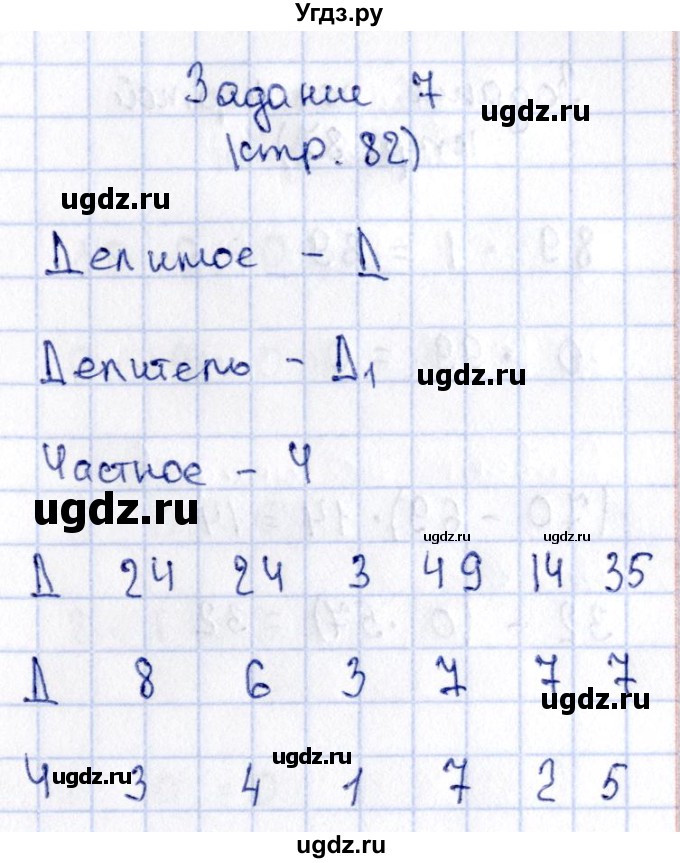 Угдз.ру
Задание 7 ugdz.ru
(стр. 82)
ugdz.ru
Делимое - Д
Делитель - Д1 ugdz.ru
Частное - Ч
ugdz.ru ugdz.ru ugdz.ru
Д 24 24 3 49 14 35
Д 8 6 3 7 7 7
ugdz.ru
ugdz.ru ugdz.ru
Ч 3 4 1 7 2 5
ugdz.ru